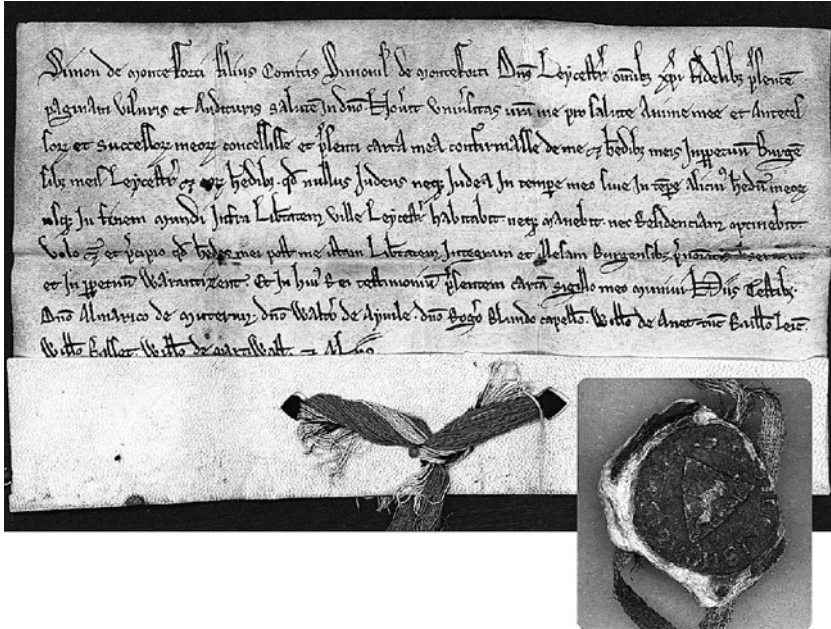 Simon de Monteforti filius Comitis Simonis de Monteforti Dñs Leycestr̃ om̃ibꝫ xp̃i fidelibꝫ p̃sentẽ
paginam visuris et Audituris salutẽ in dño Nov̾it univ̾sitas vr̃a me pro salute Anime mee et Antecess
soꝝ et Successoꝝ meoꝝ concessisse et p̃senti carta mea confirmasse de me ⁊ h̾edibꝫ meis Inꝑpetuũ Burgẽ
sibꝫ meis Leycestr̃ ⁊ eoꝝ h̾edibꝫ. qđ nullus Judeus neqꝫ Judea In tempe meo sive In tẽpe alicui᾽ h̾edũ meoꝝ
usqꝫ In finem mundi Infra Lib̾tatem ville Leycestr̃ habitabit neqꝫ manebit. nec Residenciam optinebit.
Volo et p̃cipio qđ h̾edes mei post me istam Lib̾tatem Integram et Illesam Burgensibꝫ
et In ꝑpetuũ Warantizent. Et In hui᾽ Rei testimoniũ p̃sentem cartã sigillo meo munivi Hiis Testibꝫ.
Dño Almarico de dño Walt̾o de dño Rog̾o Blundo capellõ. Willõ de Anet tũc Baillõ Leic̃.
Willõ Basset. Willõ de ⁊ Aliis